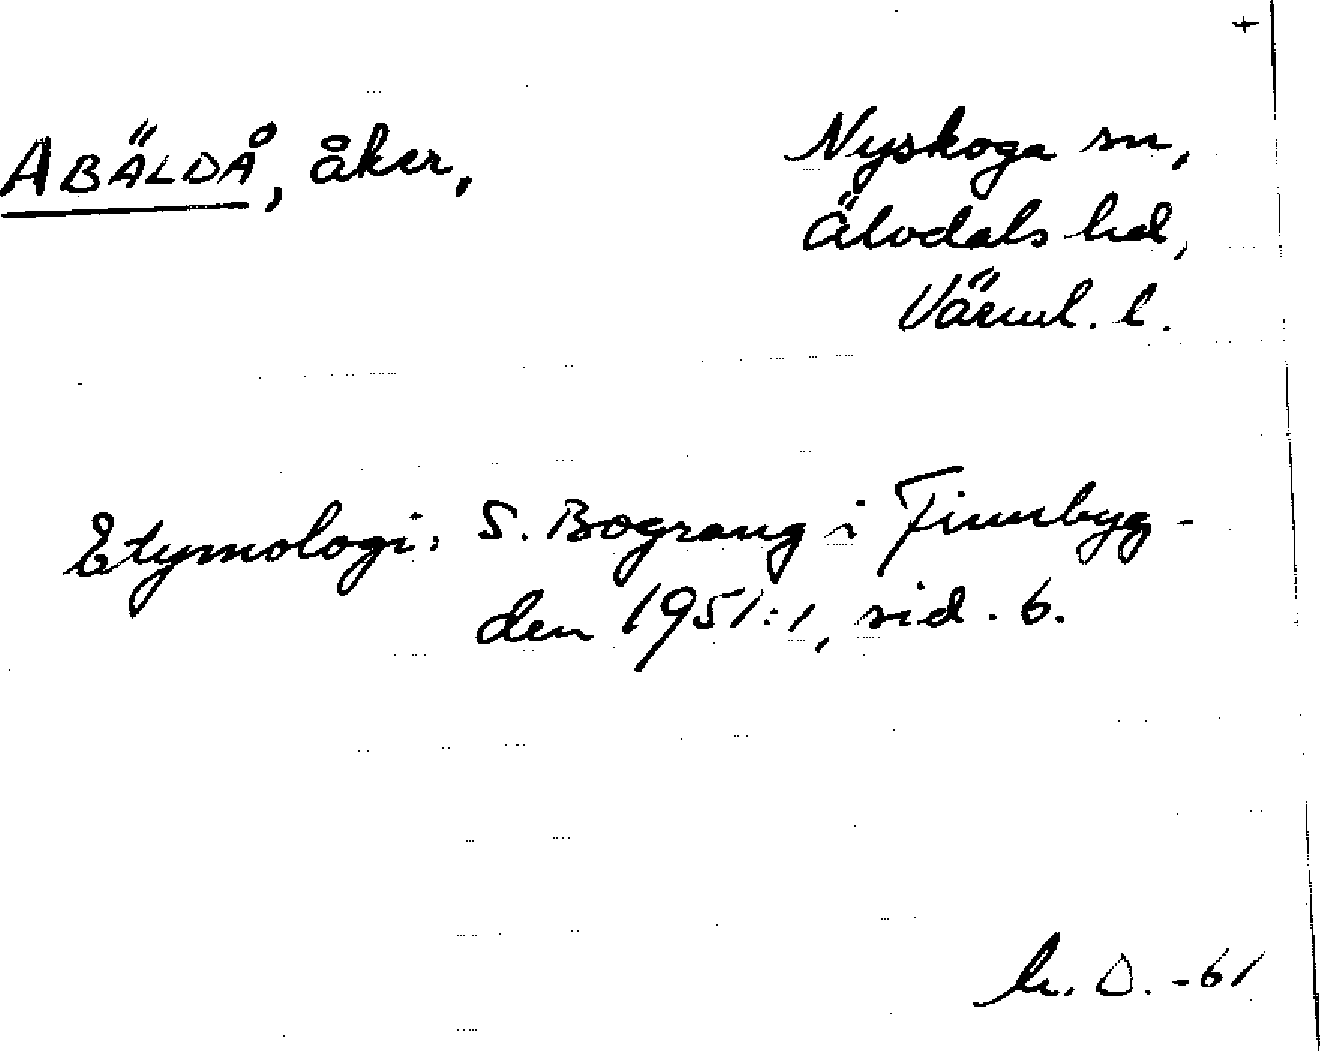 +
ABÄLDÅ, åker, Nyskoga sn,
Älvdals hd,
Värml. l.
Etymologi: S. Bograng i Finnbyg-
den 1951:1, sid. 6.
D. -61